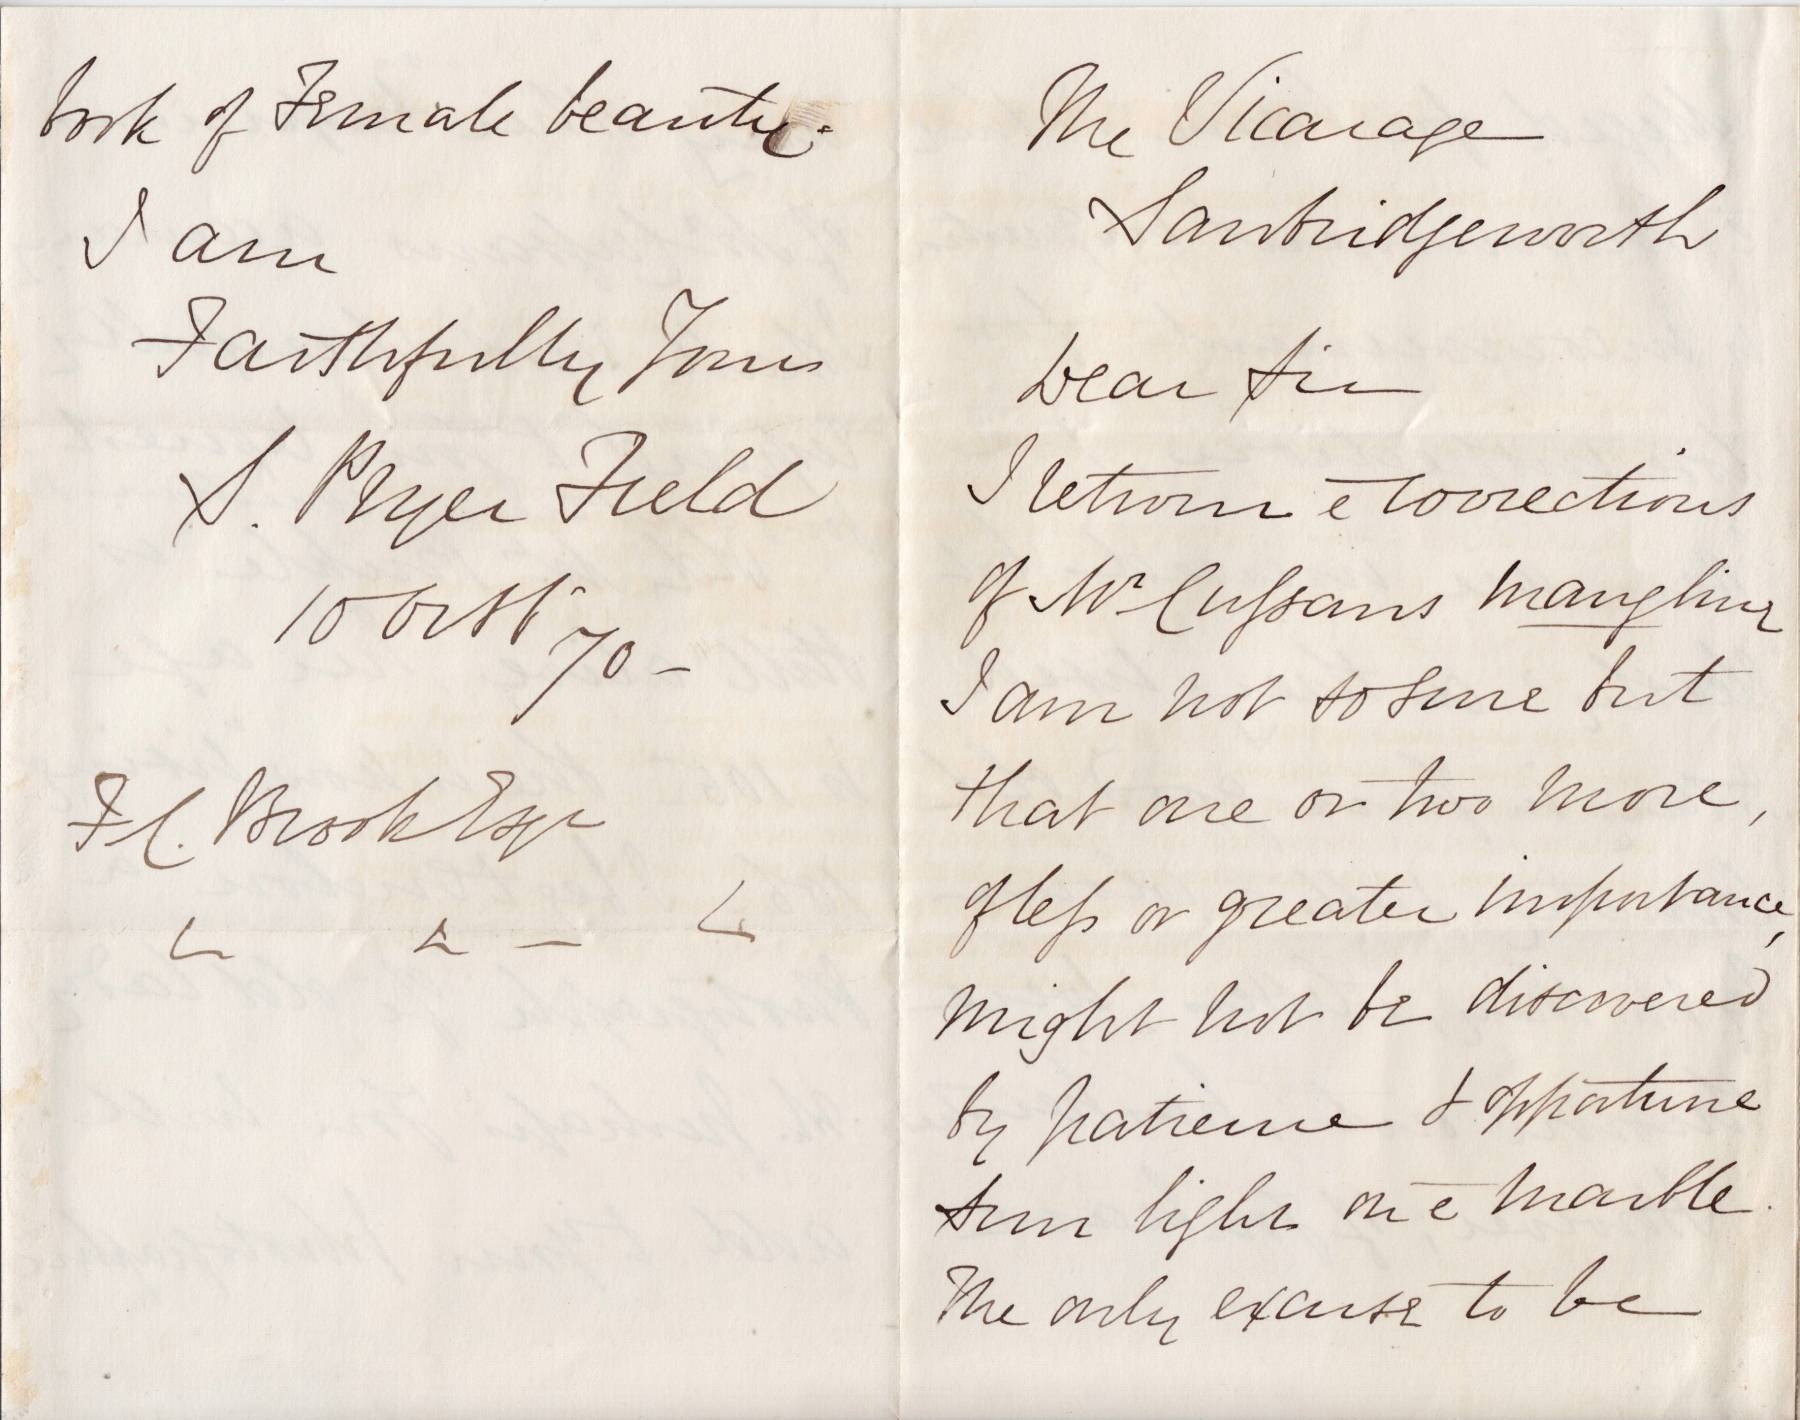 The Vicarage
Sawbridgeworth
Dear Sir
I return ē corrections
of Mr Cussans mangling
I am not so sure but
that one or two more,
of less or greater importance,
might not be discovered
by patience & opportune
sun light on ē marble.
The only excuse to be
book of Female beauty.
I am
Faithfully Yours
S. Pryer Field
10 Octbr
70 -
F C. Brook Esqr